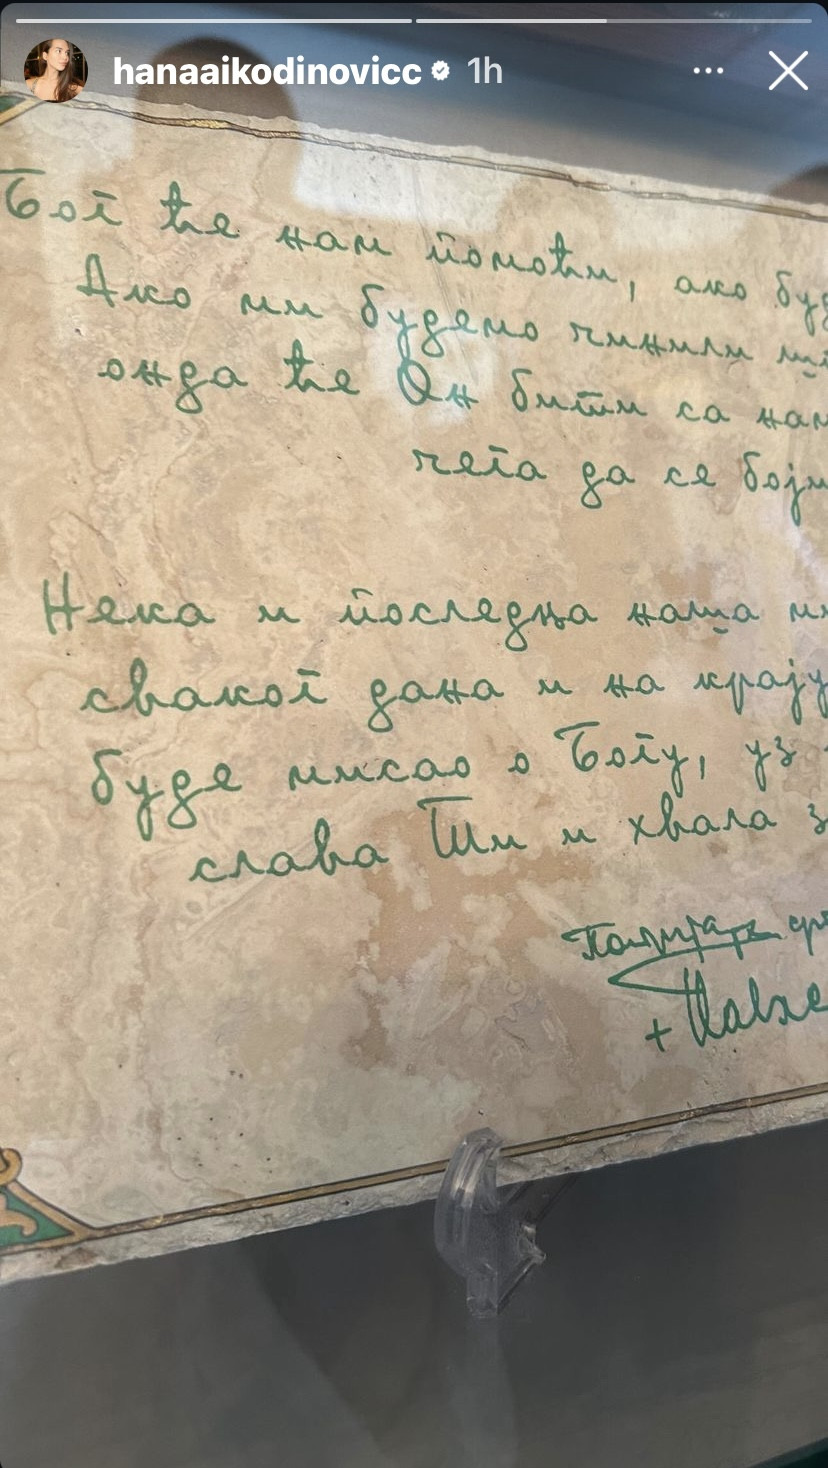 hanaaikodinovicc 1h
Бог ће нам помоћи, ако буд
Ако ми будемо чинили
онда ће Он бити са нам
чега да се бојм
Нека и последња наша
сваког дана и на крају
буде мисао о Богу, уз
слава Ти и хвала з
Патријарх
+ Павле